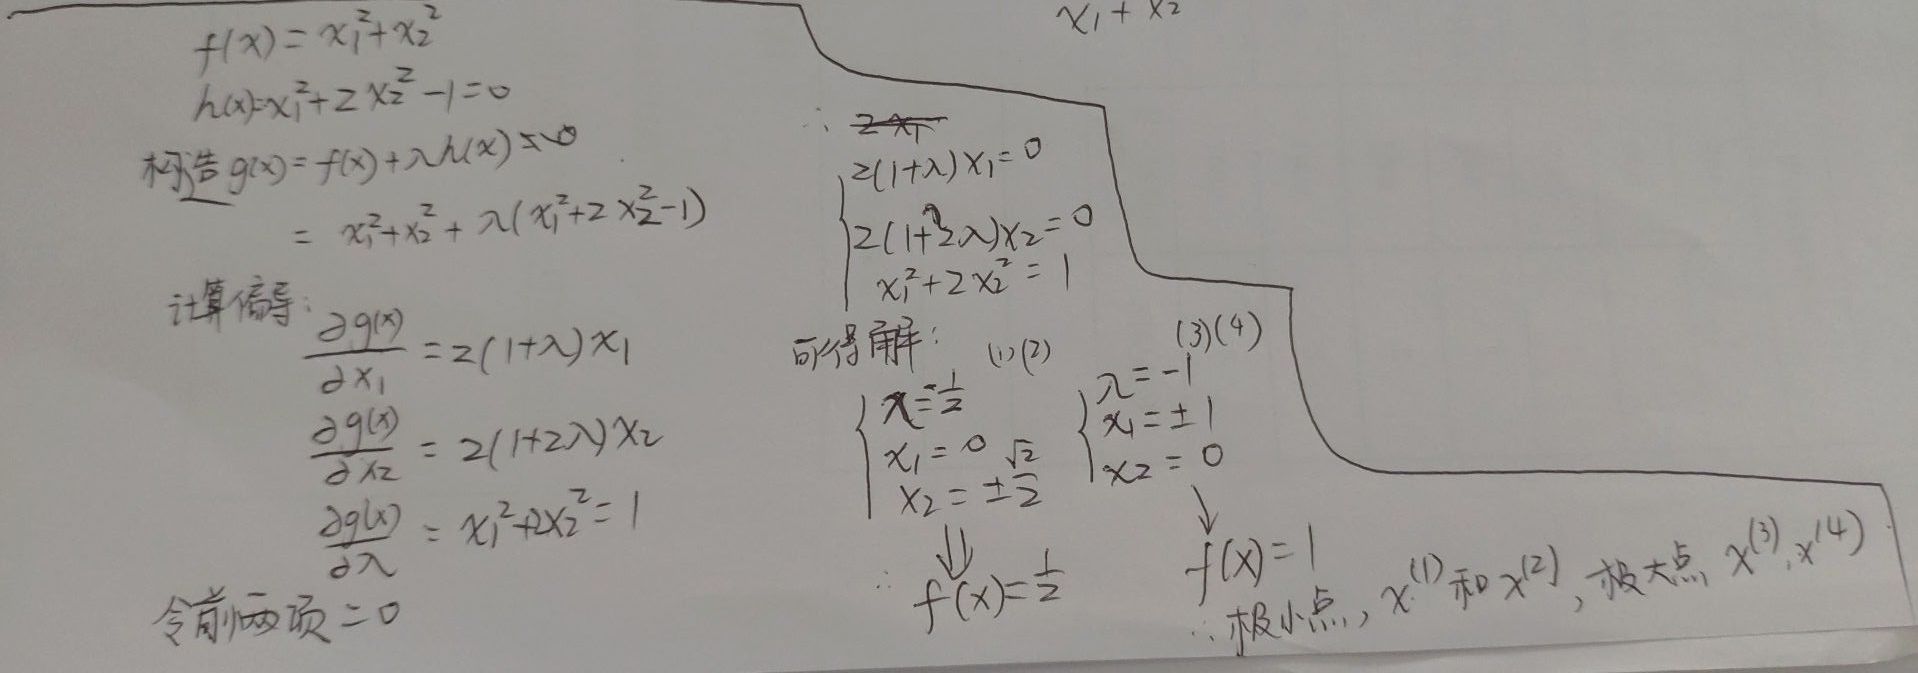 f(x)=x₁²+x₂²
h(x)=x₁²+2x₂²-1=0
构造g(x)=f(x)+λh(x)
=x₁²+x₂²+λ(x₁²+2x₂²-1)
计算偏导:
∂g(x)/∂x₁=2(1+λ)x₁
∂g(x)/∂x₂=2(1+2λ)x₂
∂g(x)/∂λ=x₁²+2x₂²=1
令前两项=0
x₁+x₂
∴ 2x₁
2(1+λ)x₁=0
2(1+2λ)x₂=0
x₁²+2x₂²=1
可得解: (1)(2) (3)(4)
λ=-1/2
x₁=0
x₂=±√2/2
⇓
∴ f(x)=1/2
λ=-1
x₁=±1
x₂=0
↓
f(x)=1
∴极小点,x⁽¹⁾和x⁽²⁾,极大点x⁽³⁾,x⁽⁴⁾